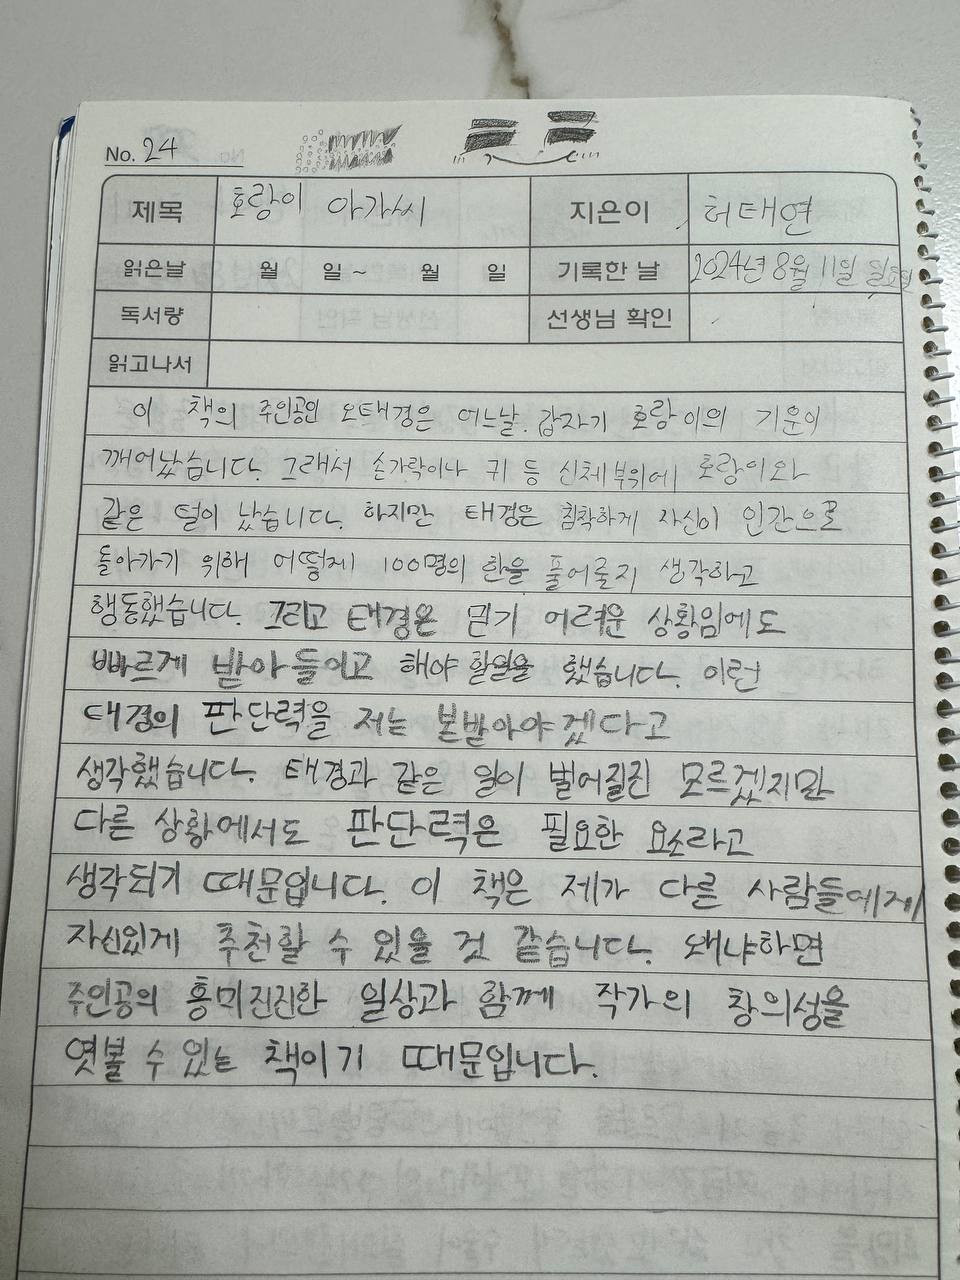 No. 24
제목 호랑이 아가씨 지은이 허태연
읽은날 월 일 ~ 월 일 기록한 날 2024년 8월 11일 일요일
독서량 선생님 확인
읽고나서
이 책의 주인공인 오태경은 어느날 갑자기 호랑이의 기운이
깨어났습니다. 그래서 손가락이나 귀 등 신체부위에 호랑이와
같은 털이 났습니다. 하지만 태경은 침착하게 자신이 인간으로
돌아가기 위해 어떻게 100명의 한을 풀어줄지 생각하고
행동했습니다. 그리고 태경은 믿기 어려운 상황임에도
빠르게 받아들이고 해야 할일을 했습니다. 이런
태경의 판단력을 저는 본받아야겠다고
생각했습니다. 태경과 같은 일이 벌어질진 모르겠지만
다른 상황에서도 판단력은 필요한 요소라고
생각되기 때문입니다. 이 책은 제가 다른 사람들에게
자신있게 추천할 수 있을 것 같습니다. 왜냐하면
주인공의 흥미진진한 일상과 함께 작가의 창의성을
엿볼 수 있는 책이기 때문입니다.